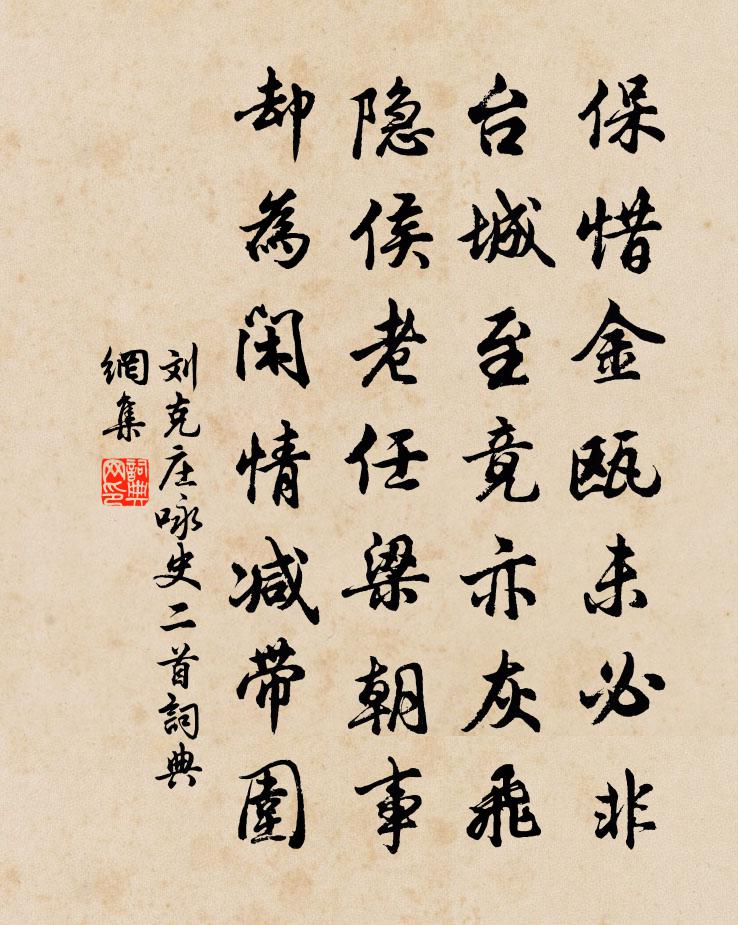 保惜金瓯未必非
台城至竟亦灰飛
隐侯老任梁朝事
却為閑情减带圍
刘克庄咏史二首詞典
網集
詞典
网印